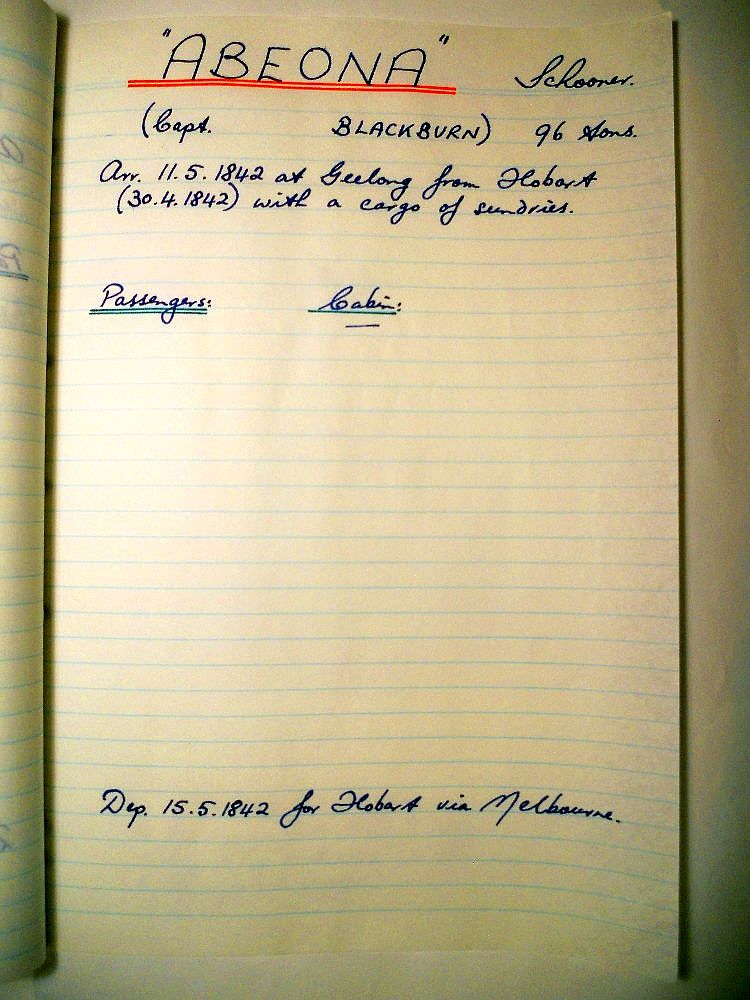 "ABEONA" Schooner.
(Capt. BLACKBURN) 96 tons.
Arr. 11.5.1842 at Geelong from Hobart
(30.4.1842) with a cargo of sundries.
Passengers: Cabin:
—
Dep. 15.5.1842 for Hobart via Melbourne.